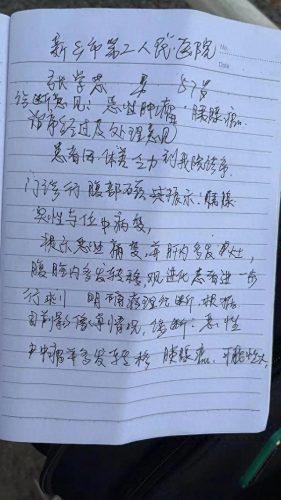 新乡市第二人民医院
No.
Date
张学志 男 57岁
诊断意见:恶性肿瘤 胰腺癌
治疗经过及处理意见
患者因体柔乏力到我院诊疗.
门诊行腹部 示:胰腺
恶性占位中病变,
提示恶性病变,并肝内多发灶,
腹腔内多发转移,建患者进一步
行 明确病理诊断.根据
目前影像学情况,诊断:恶性
肿瘤并多发转移 胰腺癌.可能性大.